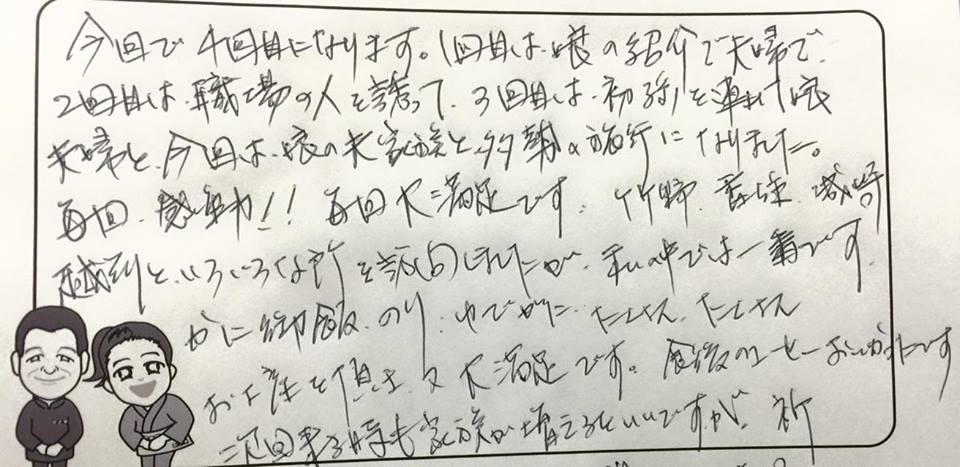 今回で4回目になります。1回目は、娘の紹介で夫婦で、
2回目は、職場の人を誘って、3回目は、初孫を連れて娘
夫婦と、今回は、娘の夫家族と多勢の旅行になりました。
毎回、感動!!毎回大満足です。竹野、香住、城崎
と、いろいろな所を訪問しましたが、私の中では一番です。
かに御飯、のり、ゆでがに、たくさん、たくさん
お土産を頂き、又大満足です。食後のコーヒーおいしかったです
次回来る時も家族が増えるといいですが、祈